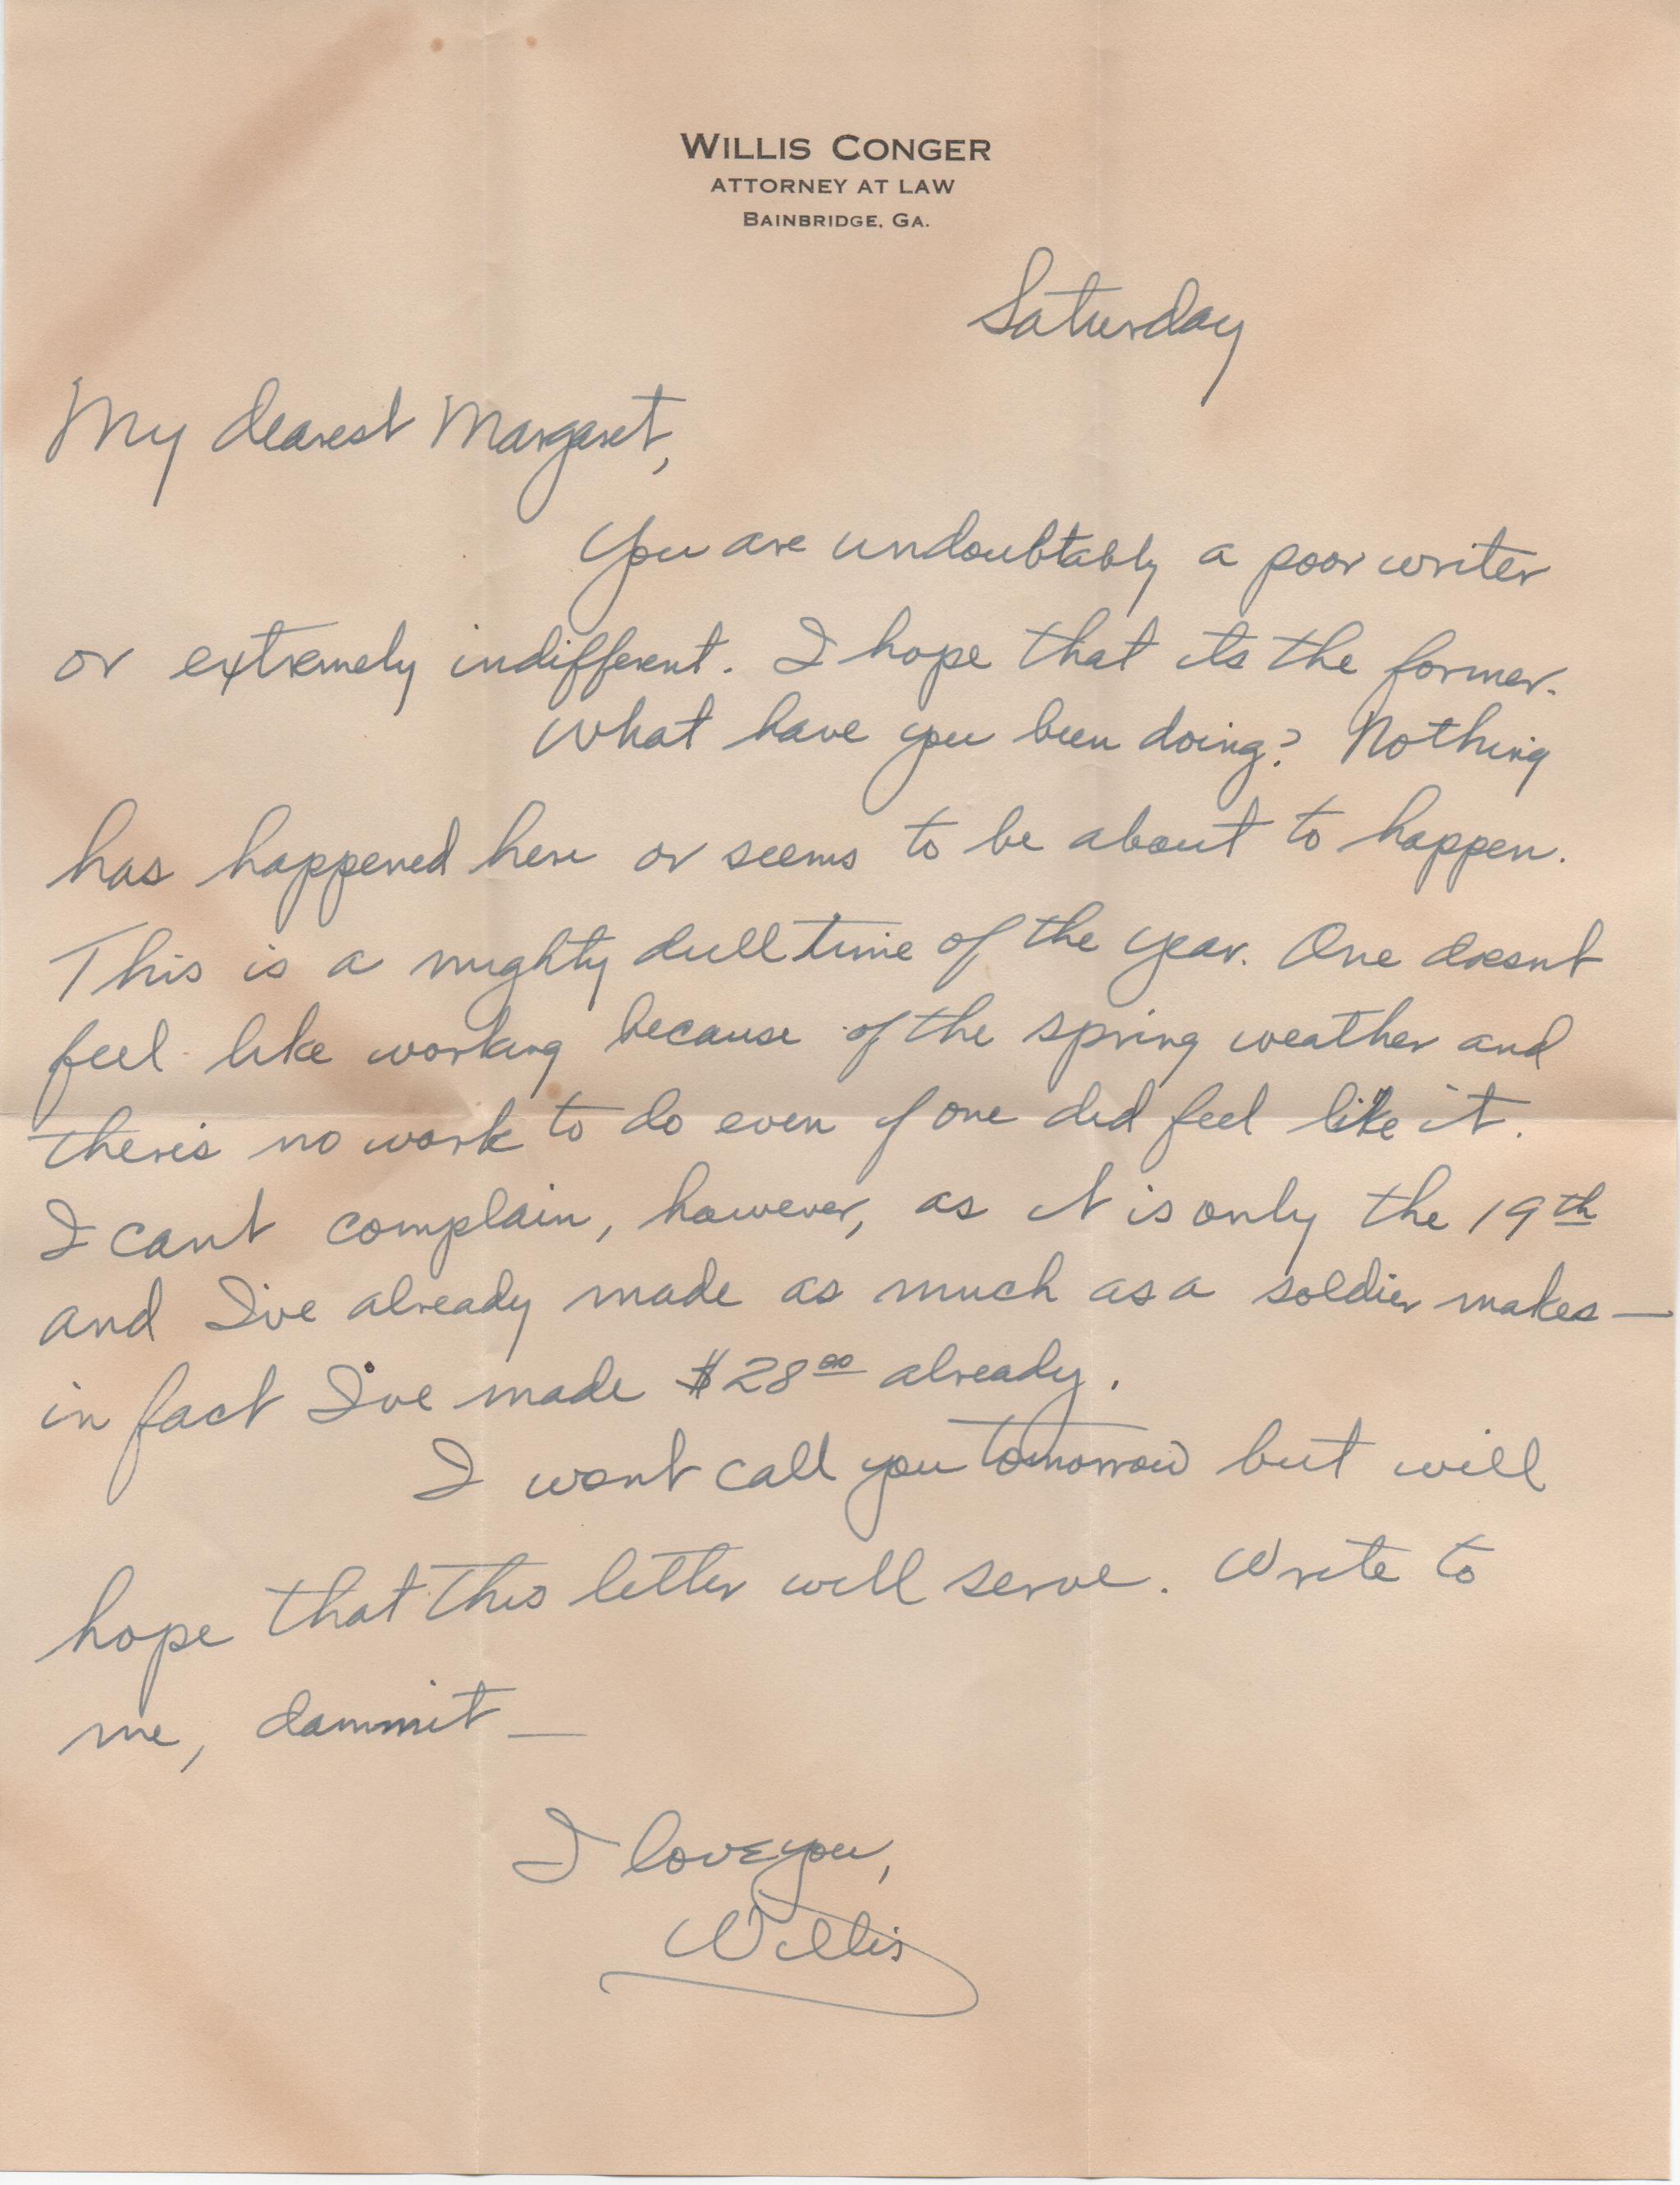 WILLIS CONGER
ATTORNEY AT LAW
BAINBRIDGE, GA.
Saturday
My dearest Margaret,
You are undoubtably a poor writer
or extremely indifferent. I hope that its the former.
What have you been doing? Nothing
has happened here or seems to be about to happen.
This is a mighty dull time of the year. One doesnt
feel like working because of the spring weather and
there's no work to do even if one did feel like it.
I cant complain, however, as it is only the 19th
and I've already made as much as a soldier makes—
in fact I've made $28.00 already.
I wont call you tomorrow but will
hope that this letter will serve. Write to
me, dammit —
I love you,
Willis